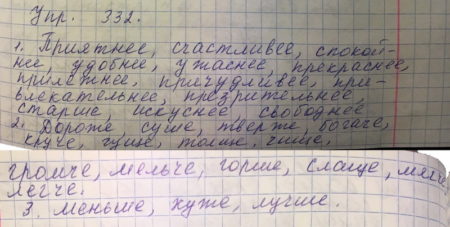 Упр. 332.
1. Приятнее, счастливее, спокой-
нее, удобнее, ужаснее, прекраснее,
прилежнее, причудливее, при-
влекательнее, презрительнее,
старше, искуснее, свободнее.
2. Дороже, суше, тверже, богаче,
круче, гуще, тоньше, чище,
громче, мельче, горше, слаще, мягче,
легче.
3. меньше, хуже, лучше.